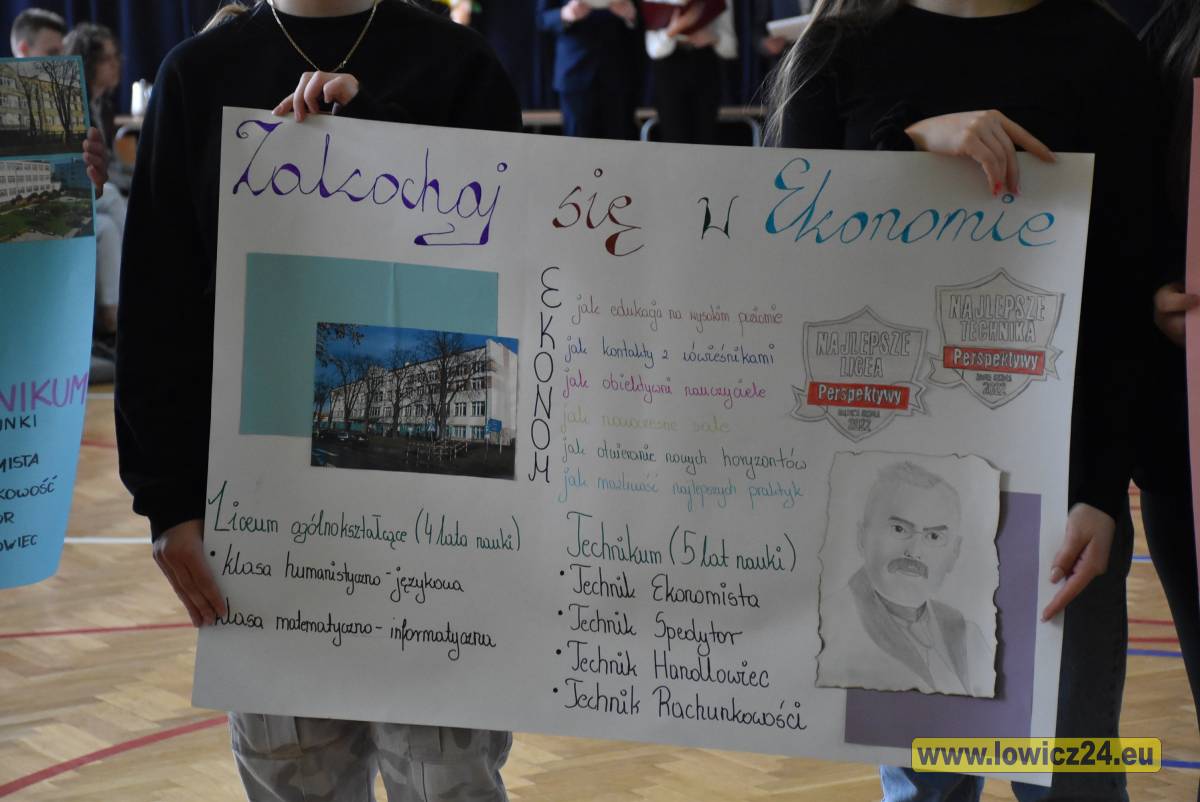 Zakochaj się w Ekonomie
EKONOM
jak edukacja na wysokim poziomie
jak kontakty z rówieśnikami
jak obiektywni nauczyciele
jak nowoczesne sale
jak otwieranie nowych horyzontów
jak możliwość najlepszych praktyk
NAJLEPSZE
LICEA
Perspektywy
2022
NAJLEPSZE
TECHNIKA
Perspektywy
2022
Liceum ogólnokształcące (4 lata nauki)
• klasa humanistyczno-językowa
• klasa matematyczno-informatyczna
Technikum (5 lat nauki)
• Technik Ekonomista
• Technik Spedytor
• Technik Handlowiec
• Technik Rachunkowości
NIKUM
UNKI
MISTA
KOWOŚĆ
OR
OWIEC
www.lowicz24.eu